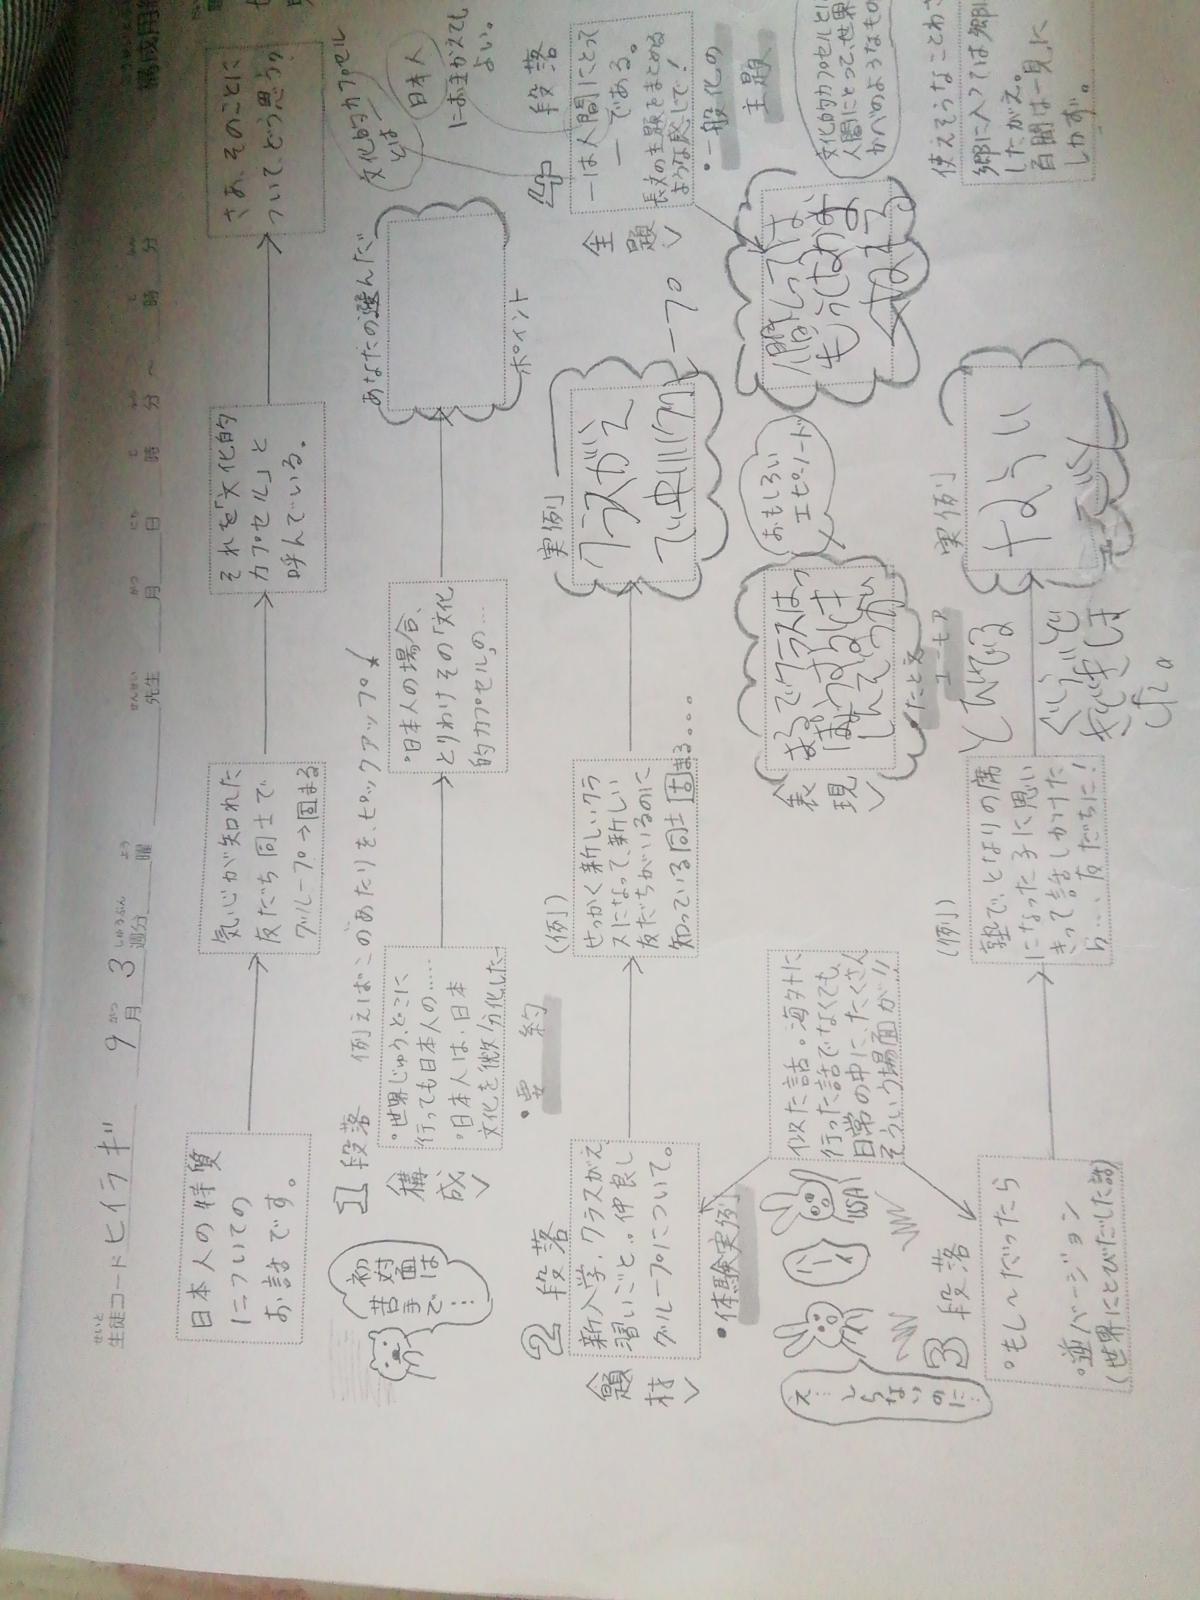 構成用紙
生徒コード ヒイラギ 9月3週分 曜 先生 月 日 時 分 ～ 時 分
日本人の特質
についての
お話です。
気心が知れた
友だち同士で
グループ→固まる
それを「文化的
カプセル」と
呼んでいる。
さあ、そのことに
ついて、どう思う?
初対面は
苦手で
…
1段落
構成
例えばこのあたりを、ピックアップ!
・世界じゅう、どこに
行っても日本人の……
・日本人は、日本
文化を微分化した
・要約
・日本人の場合、
とりわけその「文化
的カプセル」の…
あなたの選んだ
ポイント
文化的カプセル
とは
日本人
におきかえても
よい。
2段落
題材
新入学、クラスがえ
習いごと… 仲良し
グループについて。
・体験実例
(例)
せっかく新しいクラ
スになって、新しい
友だちがいるのに
知っている同士固まる。。。
実例
クラスがえ
で中川グル
ープ
4段落
主題
ーは人間にとって
ーである。
長文の主題をまとめる
ような感じで!
・一般化の
主題
え…
しらないのに…
USA!
似た話・海外に
行った話でなくても、
日常の中に、たくさん
そういう場面が!!
表現
まるでクラスは
・たとえ
ユーモア
おもしろい
エピソード
人間にとっては
文化的カプセルとは
人間にとって、世界
かべのようなもの
3段落
・もし～だったら
・逆バージョン
(世界にとびだした話)
(例)
塾で、となりの席
になった子に思い
きって話しかけた
ら…、友だちに!
実例
使えそうなことわざ
郷に入っては郷に
したがえ。
百聞は一見に
しかず。